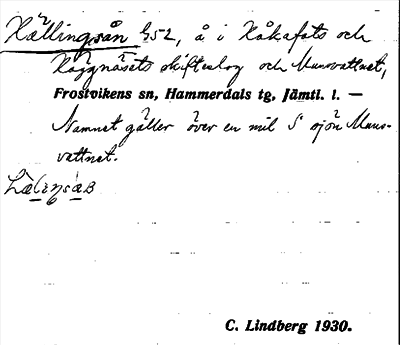 Kællingsån 652, å i Kåkafots och
Kåggnäsets skifteslag och Munsvattnet,
Frostvikens sn, Hammerdals tg, Jämtl. l. —
Namnet gäller över en mil S sjön Muns-
vattnet.
C. Lindberg 1930.